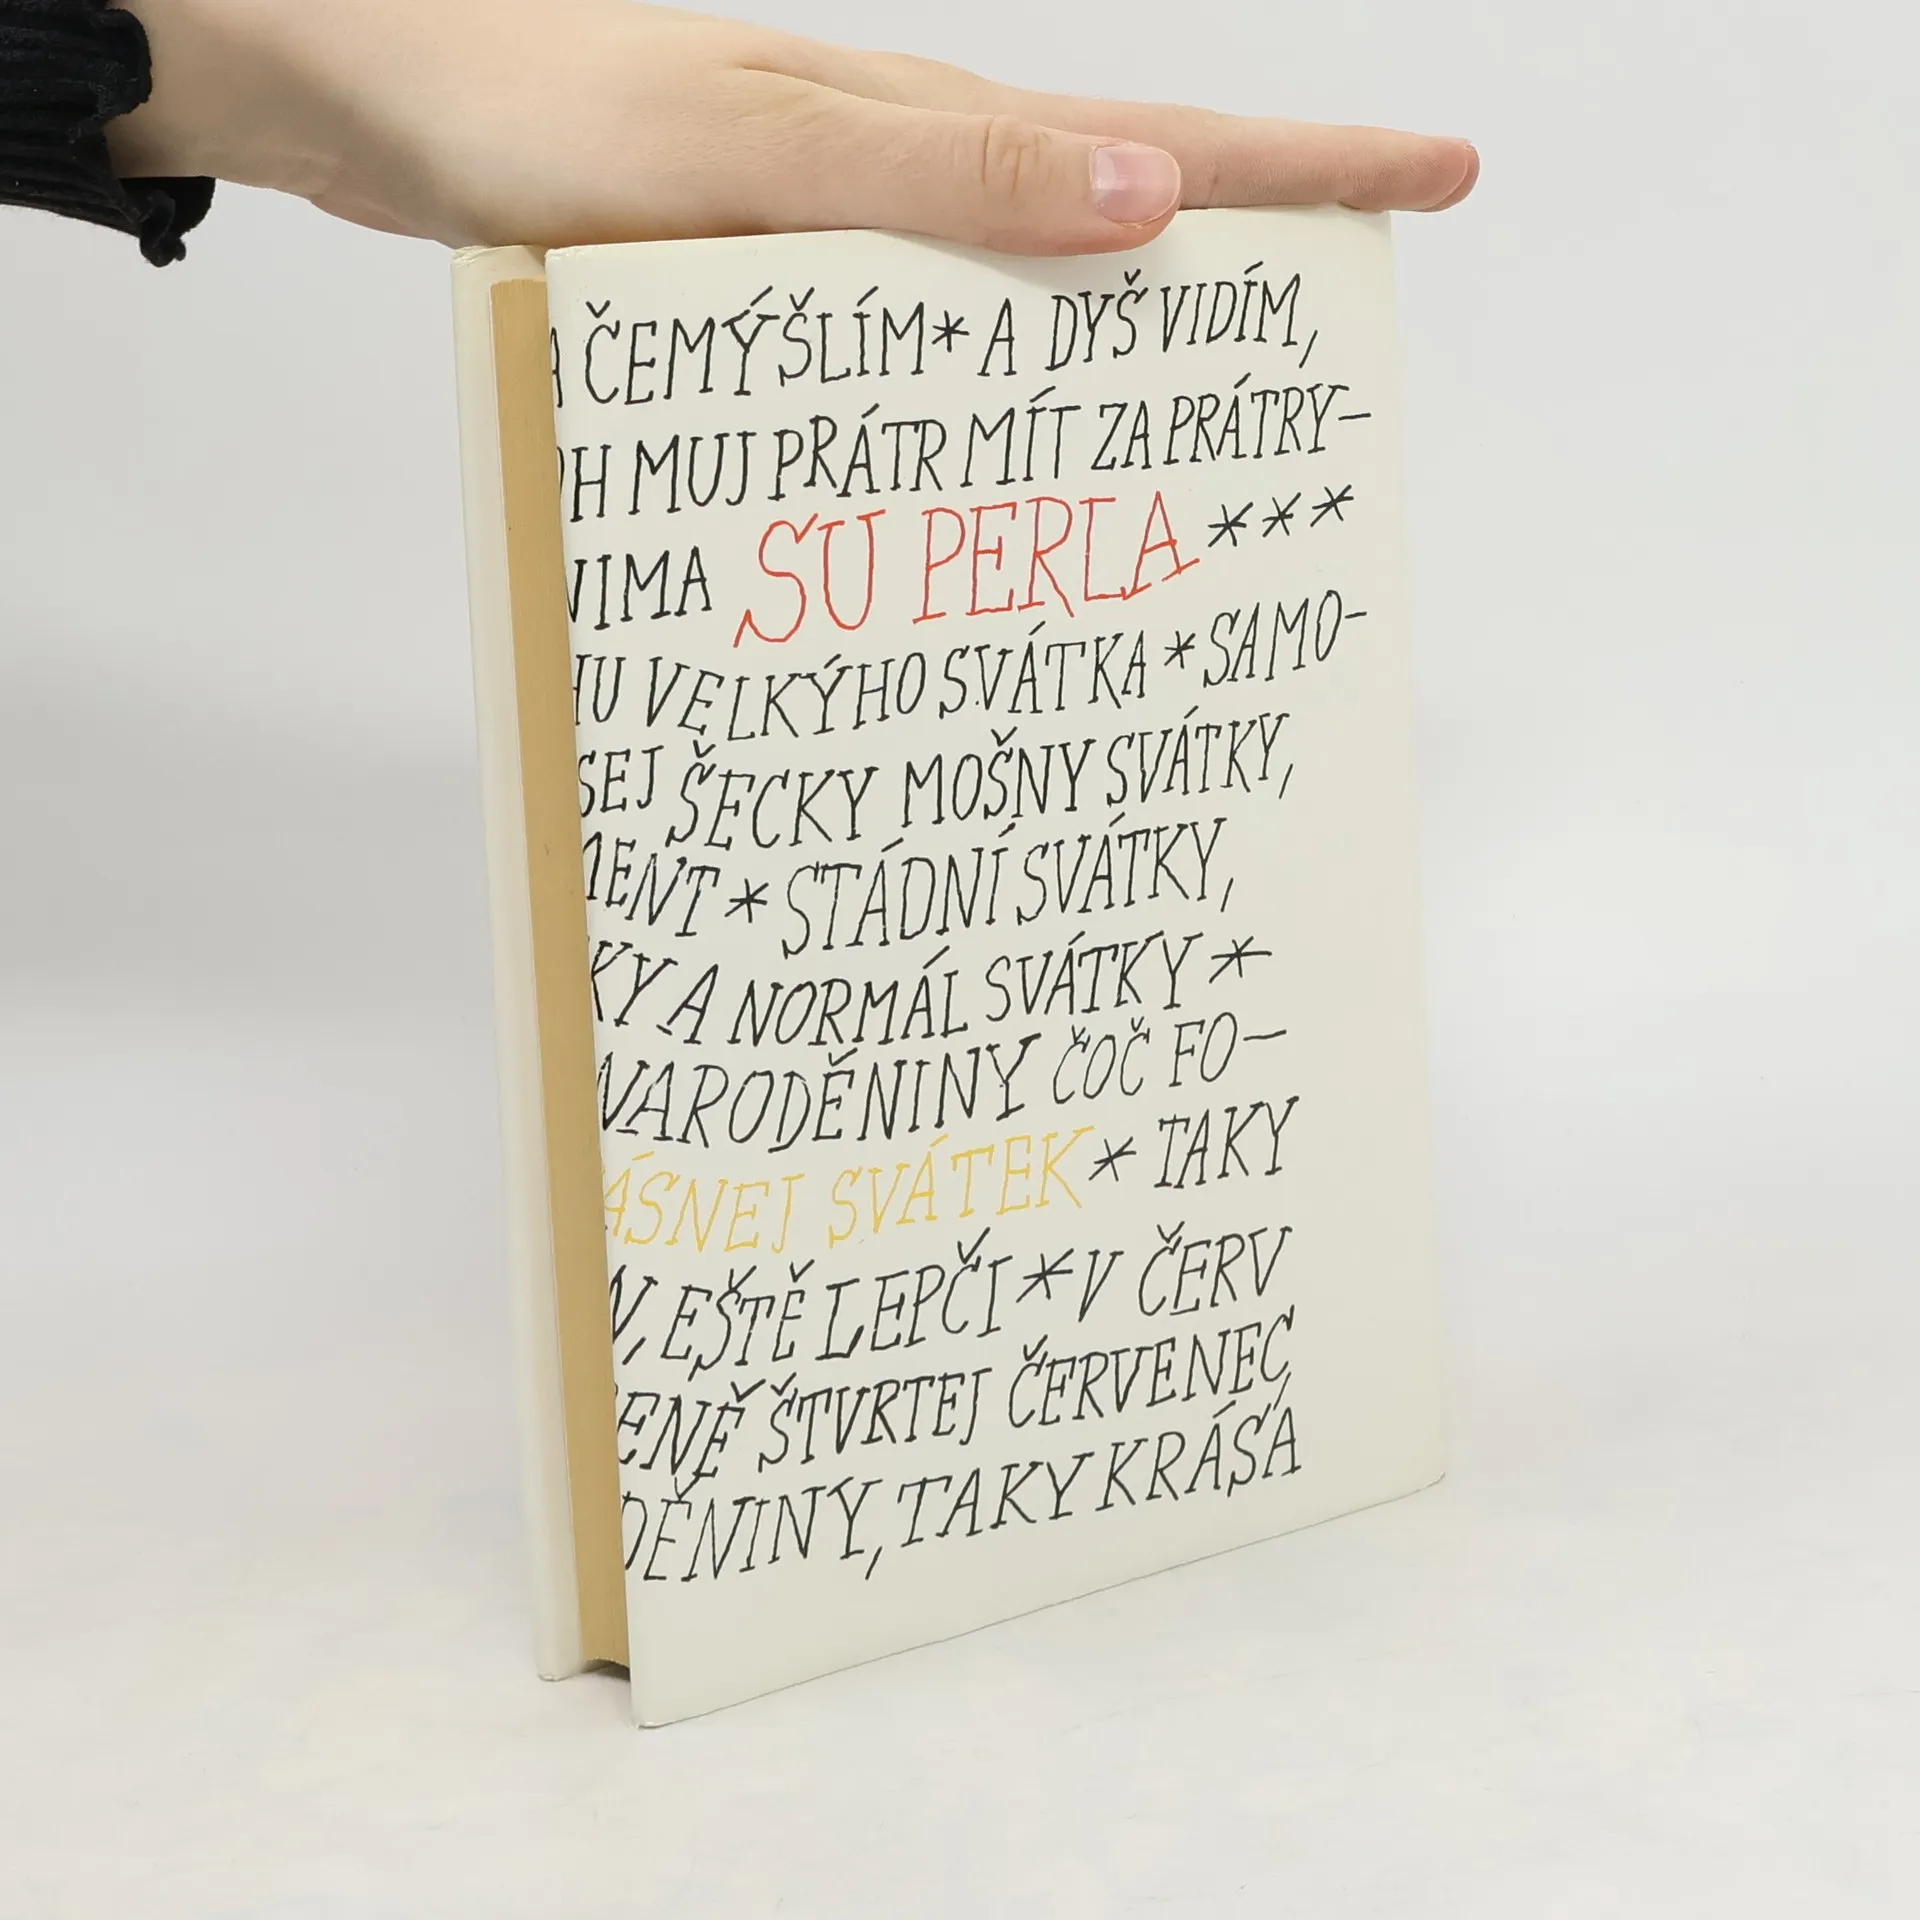 ČEMÝŠLÍM * A DYŠ VIDÍM,
MUJ PRÁTR MÍT ZA PRÁTRY-
SU PERLA ***
VELKÝHO SVÁTKA * SAMO-
ŠECKY MOŠNY SVÁTKY,
* STÁDNÍ SVÁTKY,
A NORMÁL SVÁTKY *
NARODĚNINY ČOČ FO-
SVÁTEK * TAKY
EŠTĚ LEPČI * V ČERV
ŠTVRTEJ ČERVENEC,
TAKY KRÁSA